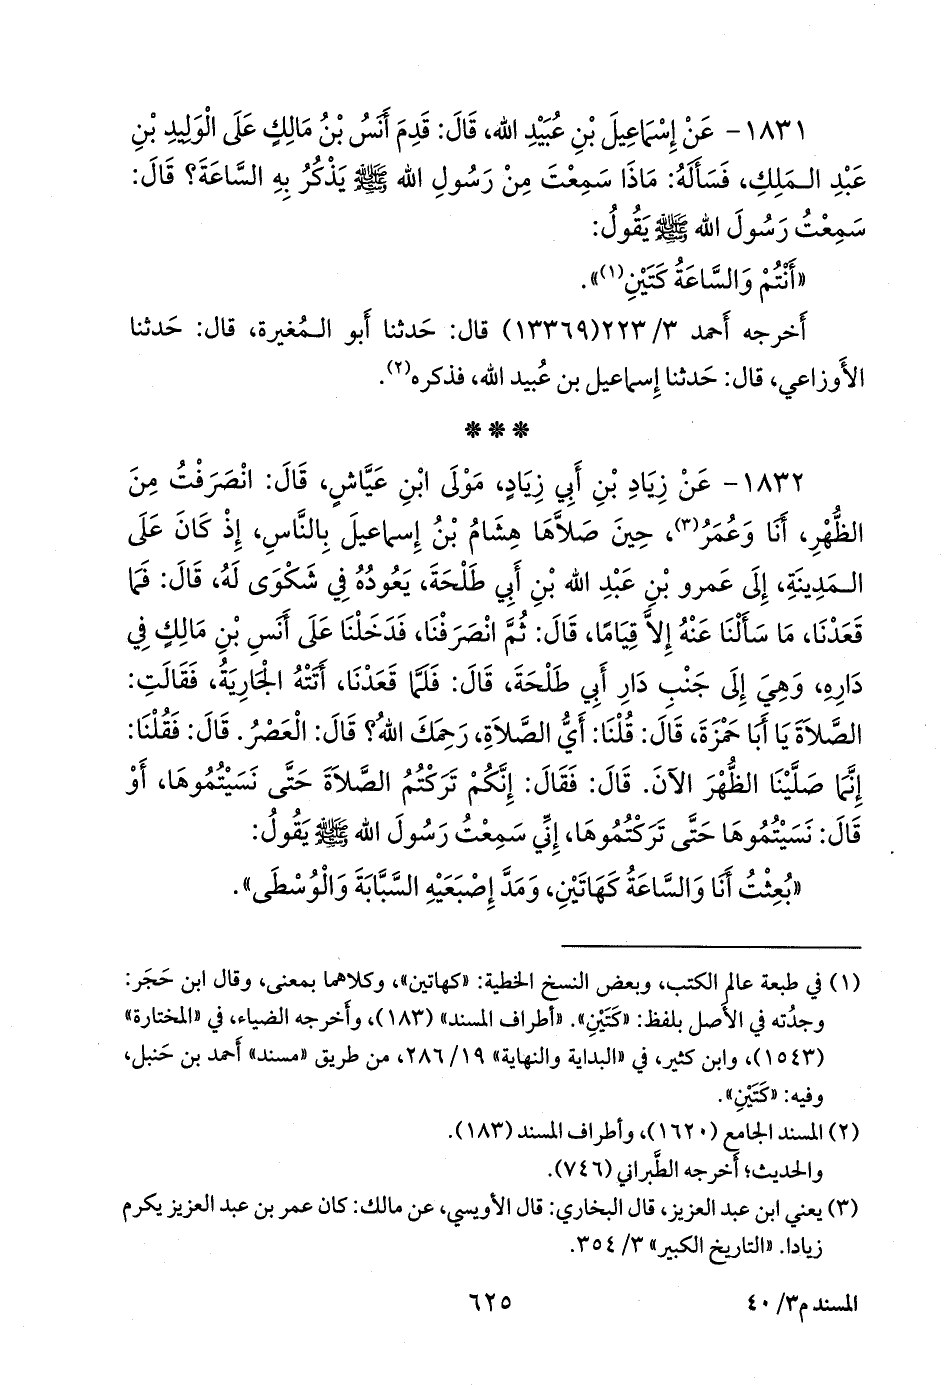 ١٨٣١- عَنْ إِسْمَاعِيلَ بْنِ عُبَيْدِ الله، قَالَ: قَدِمَ أَنَسُ بْنُ مَالِكٍ عَلَى الْوَلِيدِ بْنِ
عَبْدِ الـمَلِكِ، فَسَأَلَهُ: مَاذَا سَمِعْتَ مِنْ رَسُولِ الله ﷺ يَذْكُرُ بِهِ السَّاعَةَ؟ قَالَ:
سَمِعْتُ رَسُولَ الله ﷺ يَقُولُ:
«أَنْتُمْ وَالسَّاعَةُ كَتَيْنِ(١)».
أَخرجه أَحمد ٣/ ٢٢٣(١٣٣٦٩) قال: حَدثنا أَبو الـمُغيرة، قال: حَدثنا
الأَوزاعي، قال: حَدثنا إِسماعيل بن عُبيد الله، فذكره(٢).
***
١٨٣٢- عَنْ زِيَادِ بْنِ أَبِي زِيَادٍ، مَوْلَى ابْنِ عَيَّاشٍ، قَالَ: انْصَرَفْتُ مِنَ
الظُّهْرِ، أَنَا وَعُمَرُ(٣)، حِينَ صَلاَّهَا هِشَامُ بْنُ إِسماعيلَ بِالنَّاسِ، إِذْ كَانَ عَلَى
الـمَدِينَةِ، إِلَى عَمرو بْنِ عَبْدِ الله بْنِ أَبِي طَلْحَةَ، يَعُودُهُ فِي شَكْوَى لَهُ، قَالَ: فَمَا
قَعَدْنَا، مَا سَأَلْنَا عَنْهُ إِلاَّ قِيَامًا، قَالَ: ثُمَّ انْصَرَفْنَا، فَدَخَلْنَا عَلَى أَنَسِ بْنِ مَالِكٍ فِي
دَارِهِ، وَهِيَ إِلَى جَنْبِ دَارِ أَبِي طَلْحَةَ، قَالَ: فَلَمَّا قَعَدْنَا، أَتَتْهُ الْجَارِيَةُ، فَقَالَتِ:
الصَّلاَةَ يَا أَبَا حَمْزَةَ، قَالَ: قُلْنَا: أَيُّ الصَّلاَةِ، رَحِمَكَ اللهُ؟ قَالَ: الْعَصْرُ. قَالَ: فَقُلْنَا:
إِنَّمَا صَلَّيْنَا الظُّهْرَ الآنَ. قَالَ: فَقَالَ: إِنَّكُمْ تَرَكْتُمُ الصَّلاَةَ حَتَّى نَسَيْتُمُوهَا، أَوْ
قَالَ: نَسَيْتُمُوهَا حَتَّى تَرَكْتُمُوهَا، إِنِّي سَمِعْتُ رَسُولَ الله ﷺ يَقُولُ:
«بُعِثْتُ أَنَا وَالسَّاعَةُ كَهَاتَيْنِ، وَمَدَّ إِصْبَعَيْهِ السَّبَّابَةَ وَالْوُسْطَى».
(١) في طبعة عالم الكتب، وبعض النسخ الخطية: «كهاتين»، وكلاهما بمعنى، وقال ابن حَجَر:
وجدُته في الأَصل بلفظ: «كَتَيْنِ». «أطراف المسند» (١٨٣)، وأخرجه الضياء، في «المختارة»
(١٥٤٣)، وابن كثير، في «البداية والنهاية» ١٩/ ٢٨٦، من طريق «مسند» أَحمد بن حَنبل،
وفيه: «كَتَيْنِ».
(٢) المسند الجامع (١٦٢٠)، وأطراف المسند (١٨٣).
والحديث؛ أَخرجه الطَّبراني (٧٤٦).
(٣) يعني ابن عبد العزيز، قال البخاري: قال الأويسي، عن مالك: كان عمر بن عبد العزيز يكرم
زيادا. «التاريخ الكبير» ٣/ ٣٥٤.
المسند م٣/ ٤٠
٦٢٥